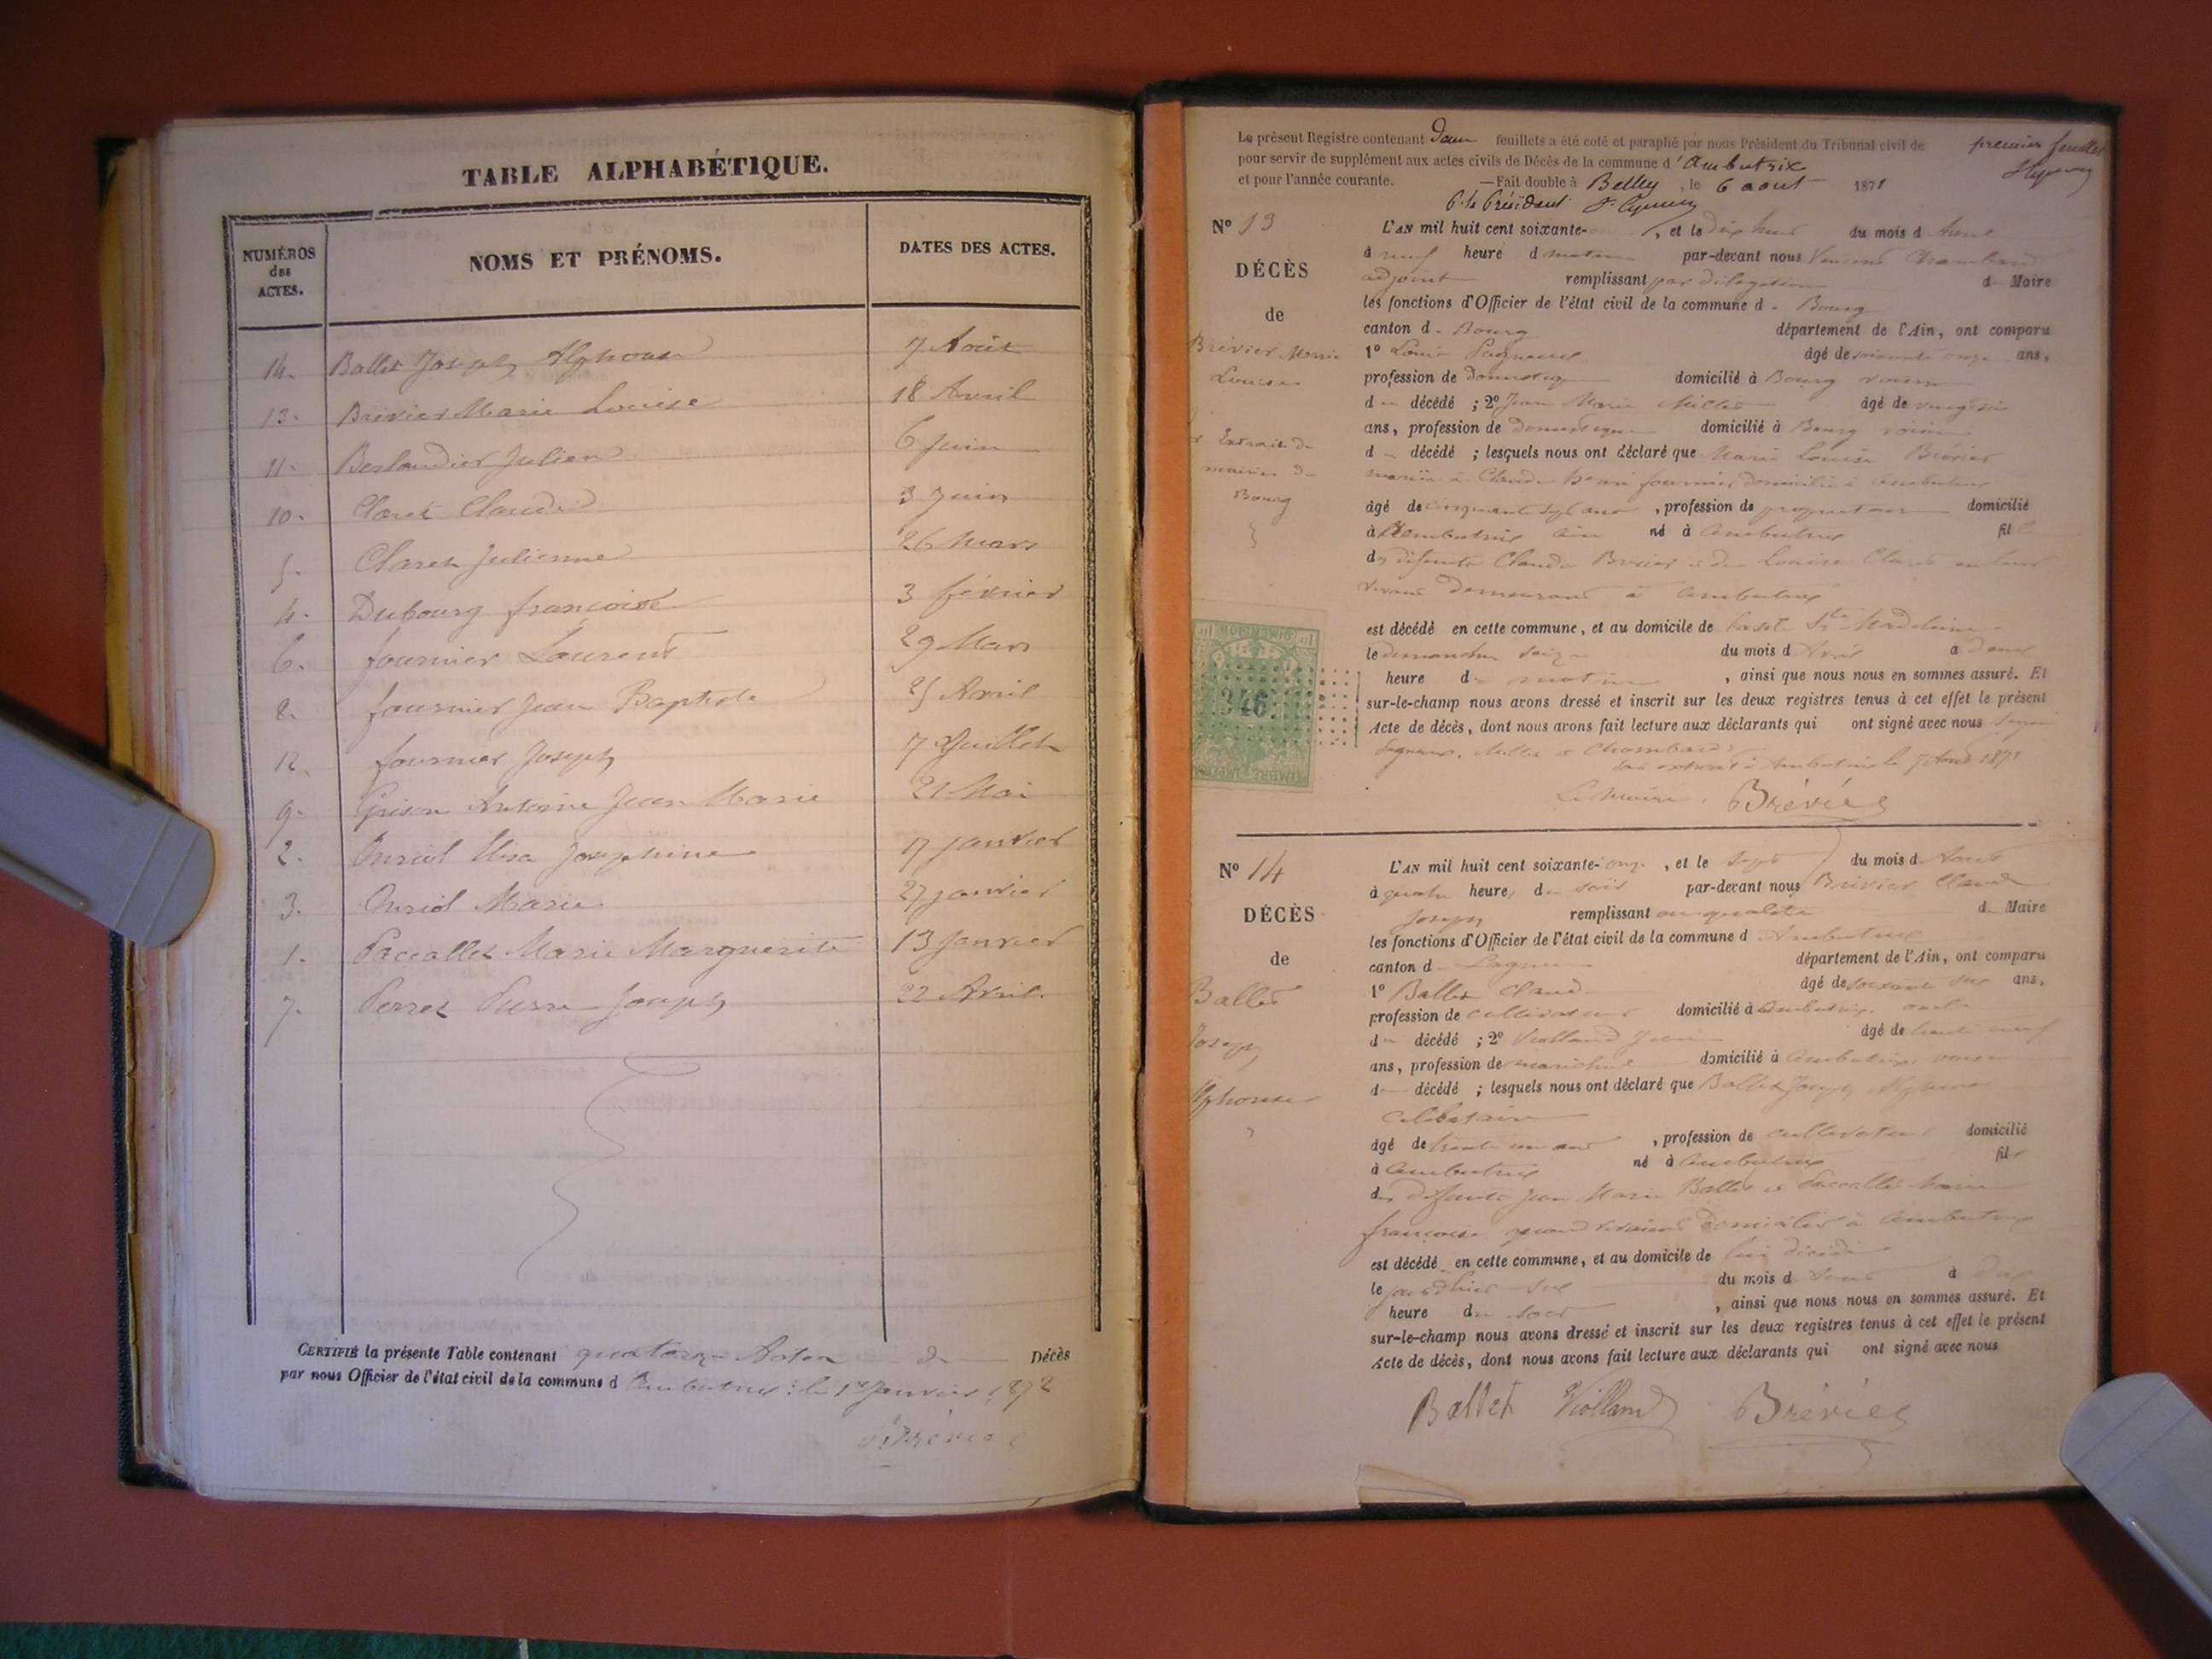 TABLE ALPHABÉTIQUE.
NUMÉROS des ACTES. NOMS ET PRÉNOMS. DATES DES ACTES.
14. Ballet Joseph Alphonse 7 Août
13. Brévier Marie Louise 18 Avril
11. Berlandier Julien 6 Juin
10. Claret Claude 3 Juin
5. Claret Julienne 26 Mars
4. Dubourg françoise 3 février
6. fournier Laurent 29 Mars
8. fournier Jean Baptiste 25 Avril
12. fournier Joseph 17 Juillet
9. Grison Antoine Jean Marie 21 Mai
2. Joséphine 17 janvier
3. Marie 27 janvier
1. Paccallet Marie Marguerite 13 Janvier
7. Perret Pierre Joseph 22 Avril.
CERTIFIÉ la présente Table contenant quatorze Actes de Décès
par nous Officier de l'état civil de la commune d Ambutrix le 1er Janvier 1872
Brévier
Le présent Registre contenant Deux feuillets a été coté et paraphé par nous Président du Tribunal civil de
premier feuillet
pour servir de supplément aux actes civils de Décès de la commune d'Ambutrix
et pour l'année courante. —Fait double à Belley, le 6 aout 1871
P. le Président
N° 13
DÉCÈS
de
Brévier Marie
Louise
Extrait de
mairie de
Bourg
L'AN mil huit cent soixante- , et le dix huit du mois d Avril
à neuf heure d matin par-devant nous Vincent Chambard
adjoint remplissant par délégation d Maire
les fonctions d'Officier de l'état civil de la commune d Bourg
canton d Bourg département de l'Ain, ont comparu
1° Louis âgé de soixante onze ans,
profession de Domestique domicilié à Bourg voisin
d décédé ; 2° Jean Marie Millet âgé de vingt
ans, profession de Domestique domicilié à Bourg voisin
d décédé ; lesquels nous ont déclaré que Marie Louise Brévier
mariée à Claude fournier domicilié à Ambutrix
âgé de cinquante sept ans , profession de domicilié
à Ambutrix Ain né à Ambutrix fil
des défunts Claude Brévier et de Louise Claret en leur
vivant demeurant à Ambutrix
est décédé en cette commune, et au domicile de Ste Madeleine
le dimanche seize du mois d Avril à Deux
heure d matin , ainsi que nous nous en sommes assuré. Et
sur-le-champ nous avons dressé et inscrit sur les deux registres tenus à cet effet le présent
Acte de décès, dont nous avons fait lecture aux déclarants qui ont signé avec nous
Millet & Chambard
Ambutrix le 7 Aout 1871
Le Maire. Brévier
DIMENSION
346.
TIMBRE IMPERIAL
N° 14
DÉCÈS
de
Ballet
Joseph
Alphonse
L'AN mil huit cent soixante-onze , et le sept du mois d Aout
à quatre heure, d soir par-devant nous Brévier Claude
Joseph remplissant en qualité d Maire
les fonctions d'Officier de l'état civil de la commune d Ambutrix
canton d Lagnieu département de l'Ain, ont comparu
1° Ballet Claude âgé de soixante ans,
profession de cultivateur domicilié à Ambutrix oncle
d décédé ; 2° Violland Jean âgé de trente neuf
ans, profession de maréchal domicilié à Ambutrix voisin
d décédé ; lesquels nous ont déclaré que Ballet Joseph Alphonse
célibataire
âgé de trente un ans , profession de cultivateur domicilié
à Ambutrix né à Ambutrix fils
des défunts Jean Marie Ballet et Paccallet Marie
françoise quand vivaient domiciliés à Ambutrix
est décédé en cette commune, et au domicile de lui décédé
le jourdhui du mois d Aout à
heure du soir , ainsi que nous nous en sommes assuré. Et
sur-le-champ nous avons dressé et inscrit sur les deux registres tenus à cet effet le présent
Acte de décès, dont nous avons fait lecture aux déclarants qui ont signé avec nous
Ballet Violland Brévier